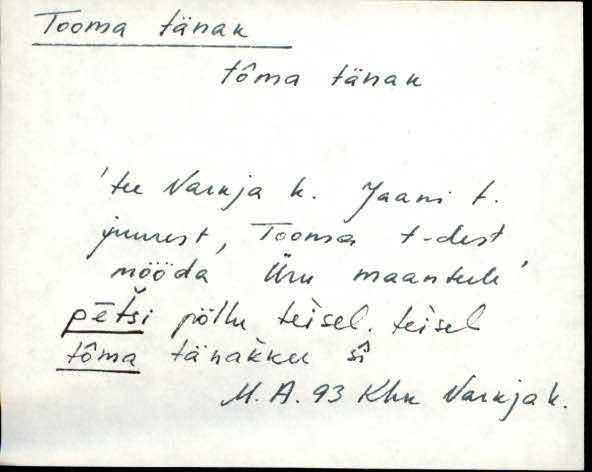 Tooma tänak
tôma tänak
'tee Varnja k. Jaani t.
juurest, Tooma t-dest
mööda Üru maanteele'
pētši põllu teìsel. teìsel
tôma tänakku sî
M. A. 93 Khn Varnja k.